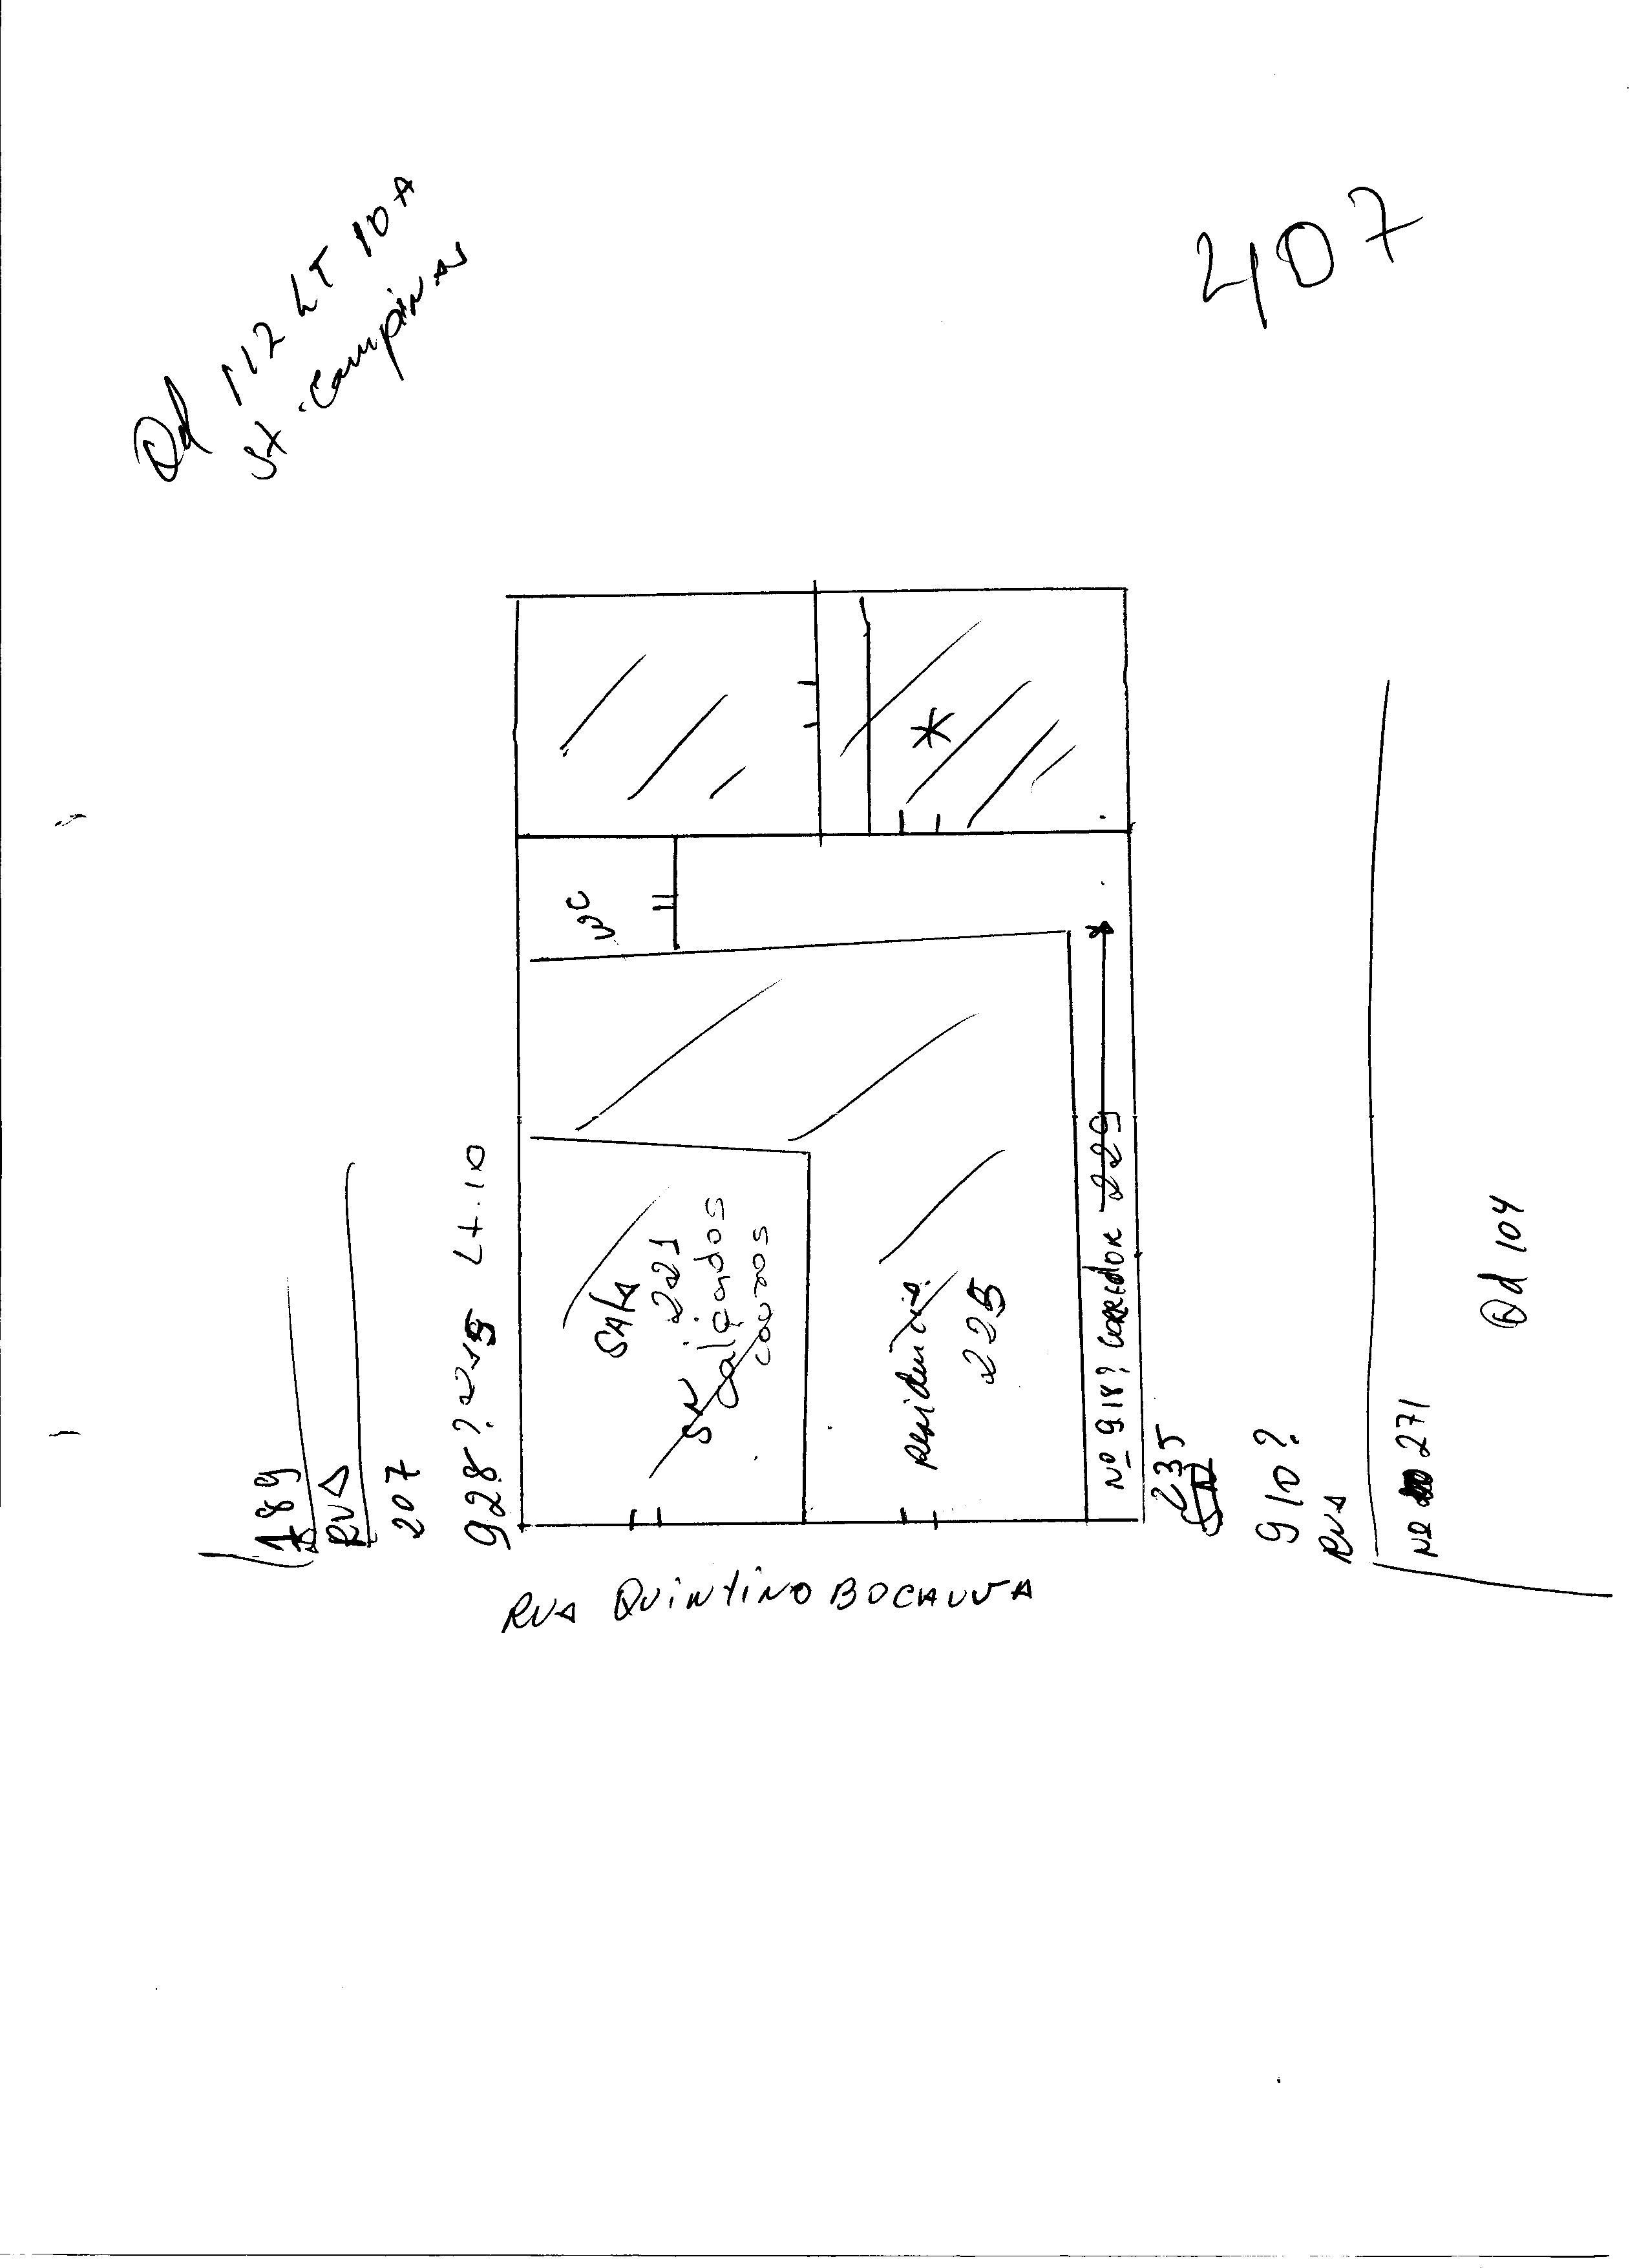 Qd 112 LT 10A
St. Campinas
407
WC
189
RUA
207
928? 215 Lt. 10
SALA
221
SN Calçados
couros
Residencia
225
Nº 918? CORREDOR 229
235
SN
910?
RUA
Nº 271
Qd 104
RUA QUINTINO BOCAUVA